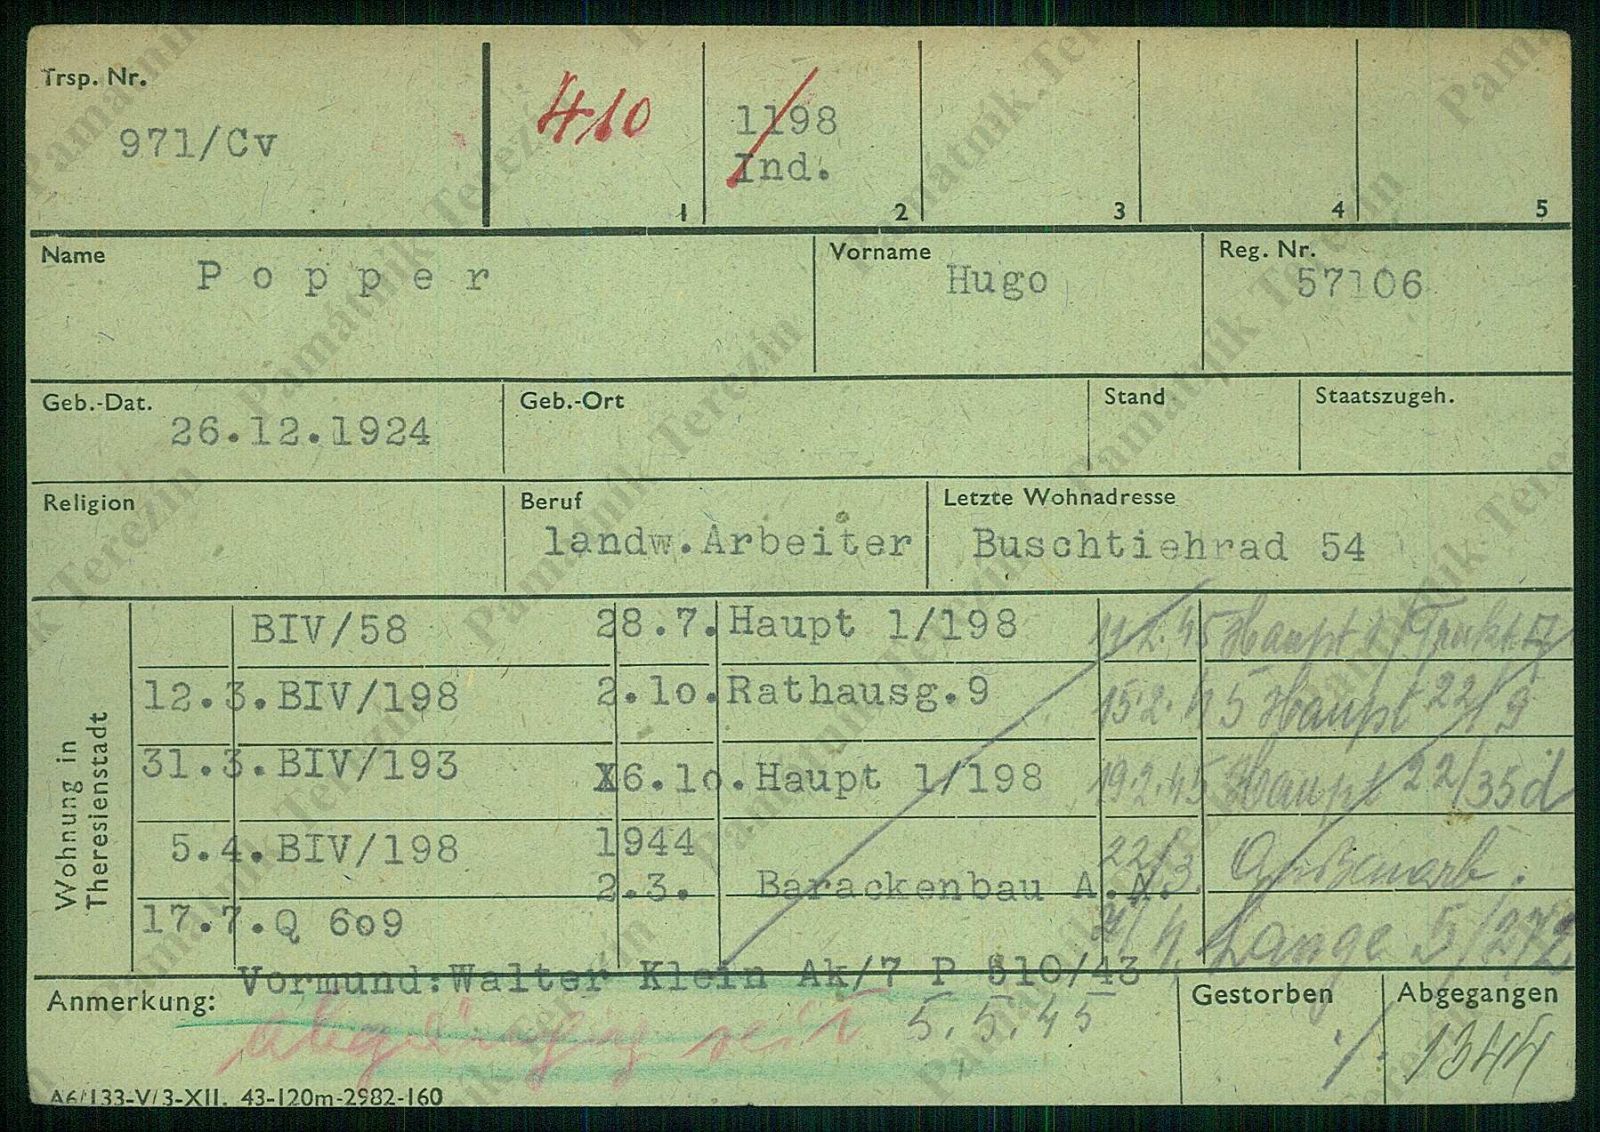 Trsp. Nr.
971/Cv
410
1
1198
Ind.
2
3
4
5
Name
Popper
Vorname
Hugo
Reg. Nr.
57106
Geb.-Dat.
26.12.1924
Geb.-Ort
Stand
Staatszugeh.
Religion
Beruf
landw.Arbeiter
Letzte Wohnadresse
Buschtiehrad 54
Wohnung in
Theresienstadt
BIV/58
12.3. BIV/198
31.3. BIV/193
5.4. BIV/198
17.7. Q 6o9
28.7. Haupt 1/198
2.1o. Rathausg.9
16.1o. Haupt 1/198
1944
2.3. Barackenbau A.A.
2.45 Haupt
15.2.45 Haupt 22/9
19.2.45 Haupt 22/35d
22/3. Außenarb.
Lange 5/272
Vormund:Walter Klein Ak/7 P 810/43
Anmerkung:
abgängig seit 5.5.45
Gestorben
Abgegangen
1344
A6/133-V/3-XII. 43-120m-2982-160
Památník Terezín